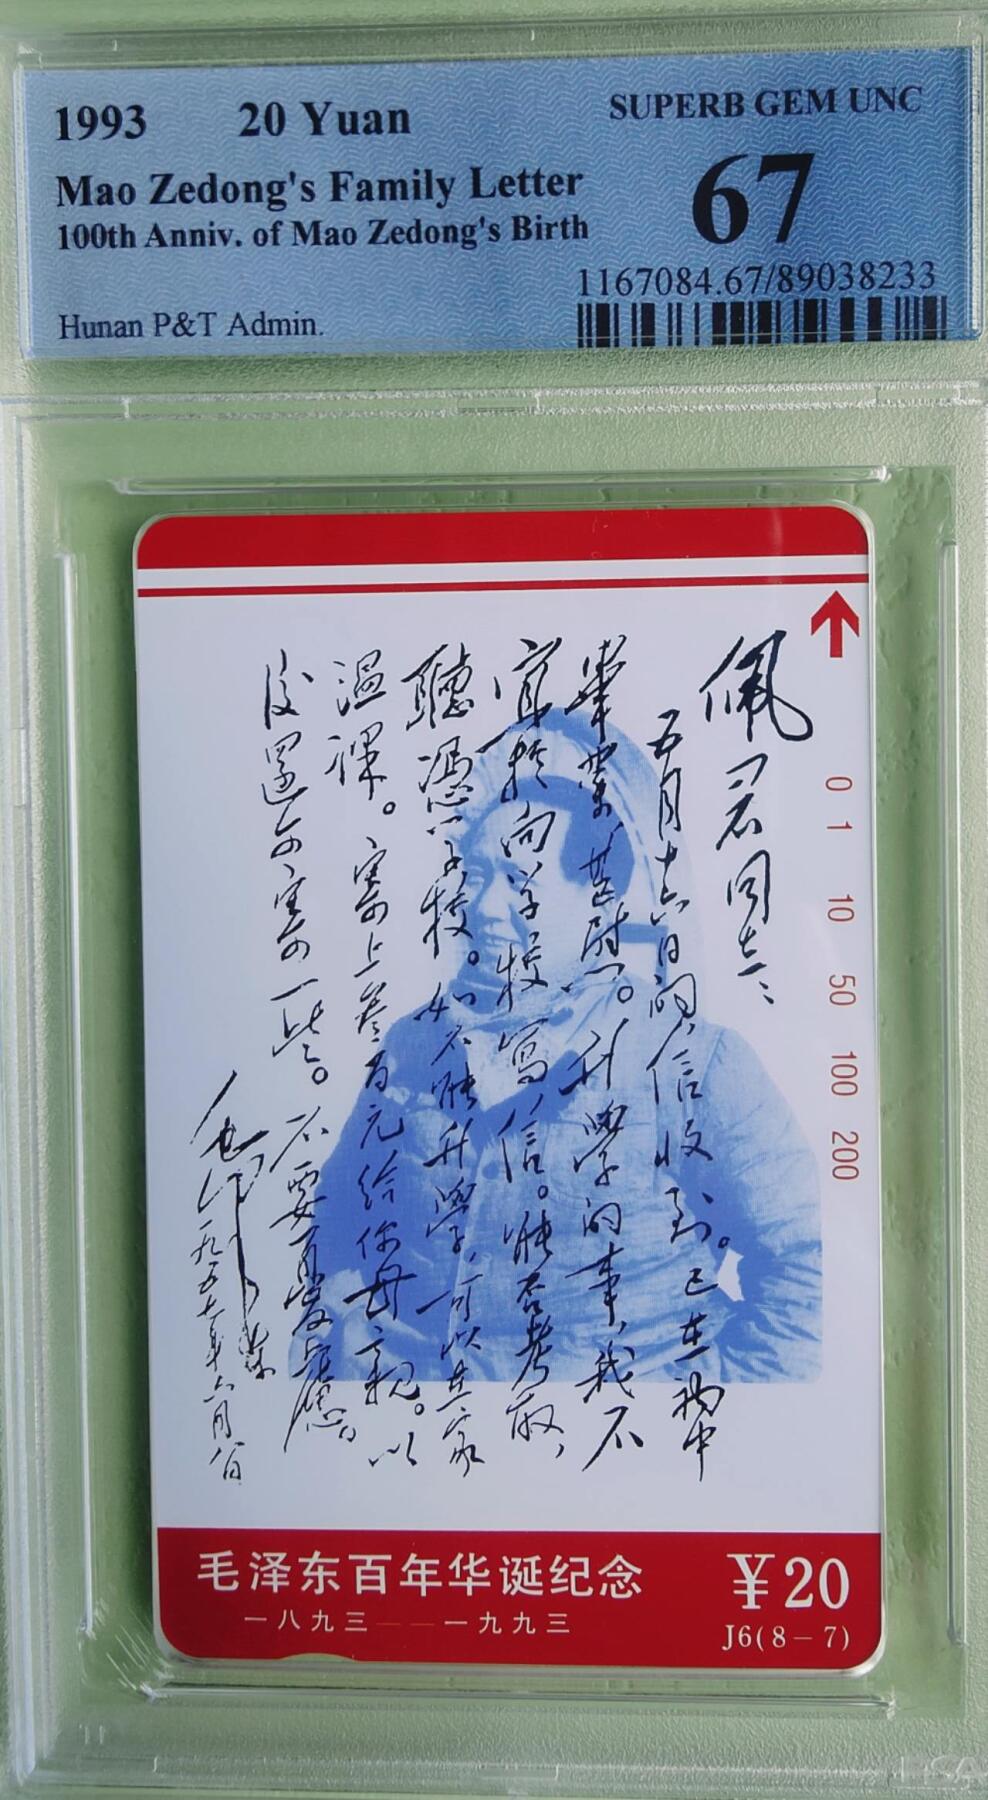 1993 20 Yuan SUPERB GEM UNC
Mao Zedong's Family Letter 67
100th Anniv. of Mao Zedong's Birth
1167084.67/89038233
Hunan P&T Admin.
0 1 10 50 100 200
佩君同志：
五月十六日的信收到。已在初中
畢業，甚慰。升學的事，我不
宜於向学校寫信。能否考取，
聽憑学校。如不能升學，可以在家
温课。寄上叁百元给你母親。以
後還可寄一些。不要有憂慮。
毛泽东
一九五七年六月八日
毛泽东百年华诞纪念 ¥20
一八九三——一九九三 J6(8-7)